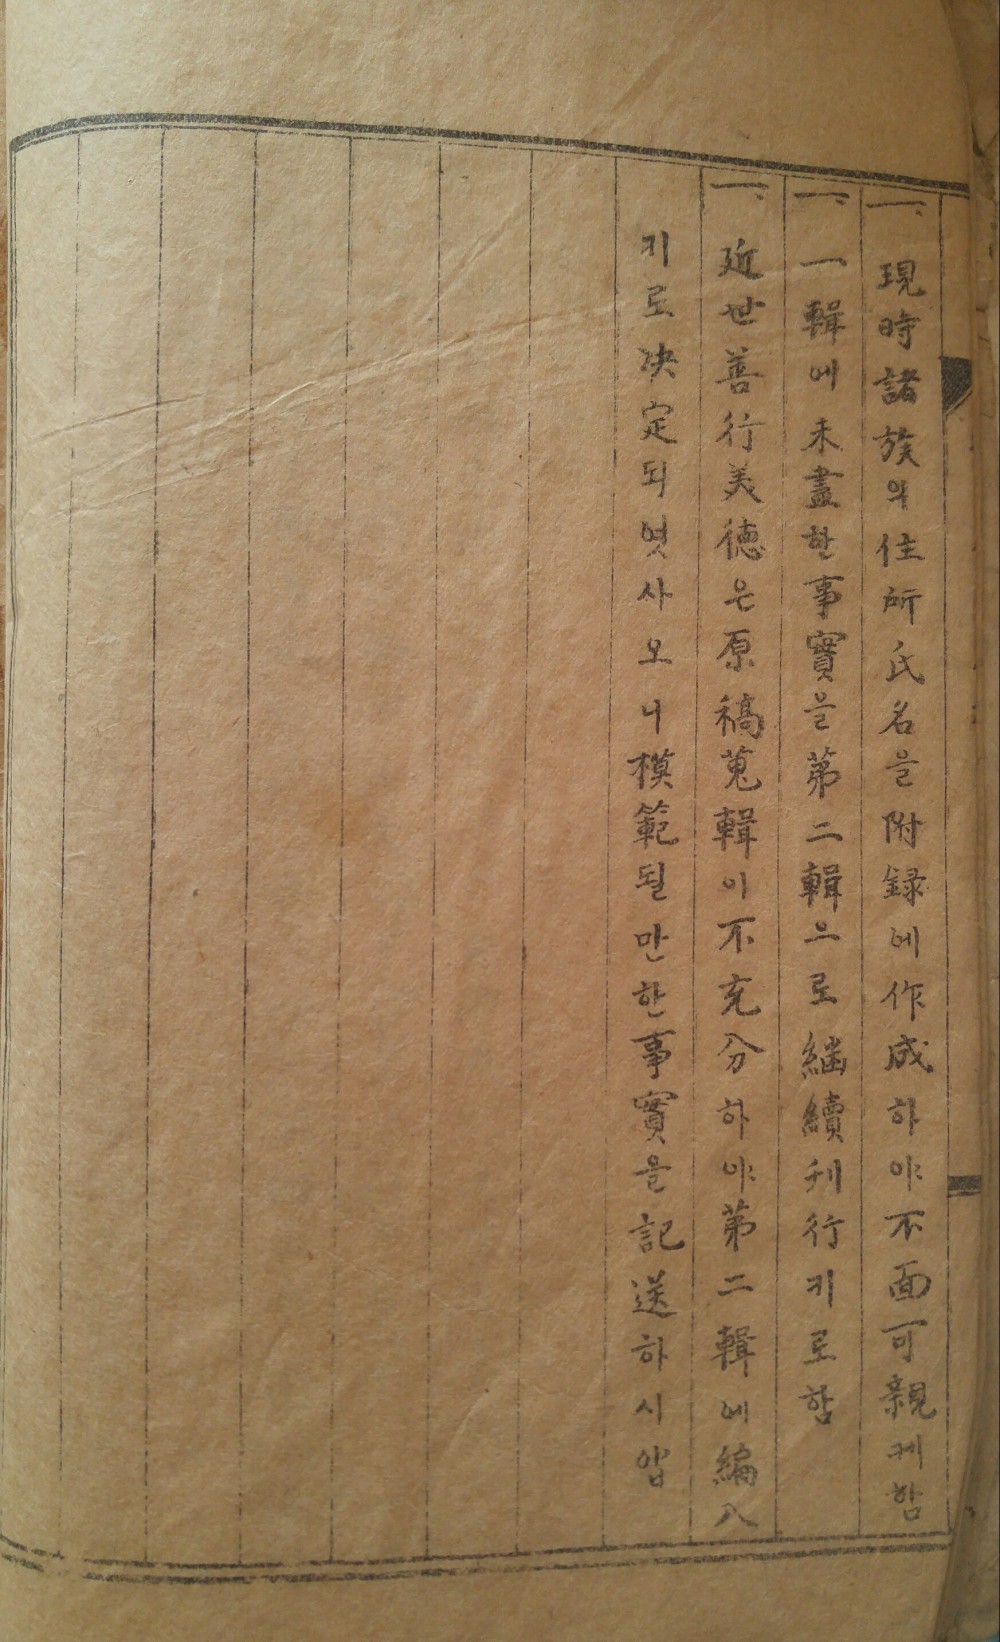 一. 現時諸族의住所氏名을附録에作成하야不面可親케함
一. 一輯에未盡한事實을苐二輯으로継續刊行키로함
一. 近世善行美德은原稿蒐輯이不充分하야苐二輯에編入
키로决定되엿사오니模範될만한事實을記送하시압